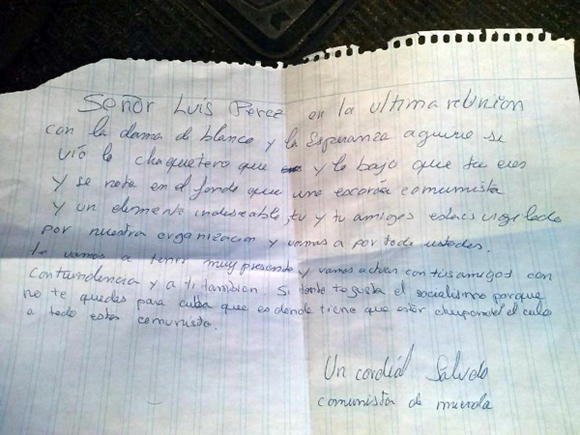 Señor Luis Perez en la ultima reunion
con la dama de blanco y la Esperanza aguirre se
vio lo chaquetero que y lo bajo que tu eres
y se nota en el fondo que una escoria comunista
y un elemento indeseable, tu y tu amigos estais vigilado
por nuestra organizacion y vamos a por todo ustedes.
te vamos a tener muy presente y vamos actuar con tus amigos con
contundencia y a ti tambien si tanto te gusta el socialismo porque
no te quedas para cuba que es donde tiene que estar chupandole el culo
a todo estos comunista.
Un cordial Saludo
comunista de mierda